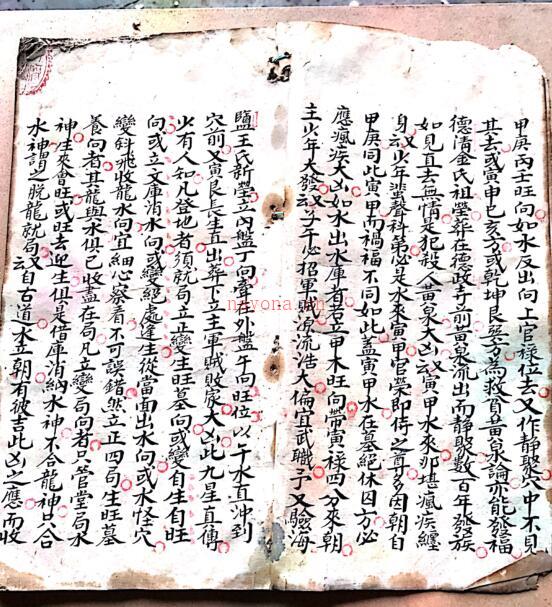 甲庚丙壬旺向如水反出向上官祿位去又作靜聚穴中不見
其去或寅申巳亥方或乾坤艮巽方為救貧黃泉論亦能發福
德清金氏祖塋葬在德政寺前黃泉流出而靜聚數百年發族
如見直去無情是犯殺人黃泉大凶云寅甲水來那堪瘋疾纏
身又云少年蜚聲科第必是水來寅甲官榮即侍之首多因朝自
甲庚同此寅甲而禍福不同如此蓋寅甲水在墓絕休囚方必
應瘋疾大凶如水出水庫者若立甲木旺向帶寅祿四分來朝
主少年大發又云子午必招軍賊源流浩大偏宜武職予又驗海
鹽王氏新塋立內盤丁向實在外盤午向旺位以午水直沖到
穴前又寅艮長生直出葬下立主軍賊敗家大凶此九星直傳
少有人知凡登地者須就局立正變生旺墓向或變自生自旺
向或立文庫消水向或變絕處逢生從當面出水向或水怪穴
變斜飛收龍水向宜細心察看不可誤錯然立正四局生旺墓
養向者其龍與水俱已收盡在局凡立變局向者只管堂局水
神生來會旺或旺去迎生俱是借庫消納水神不合龍神只合
水神謂之脫龍就局云又自古道水立朝有彼吉此凶之應而收
nayona.cn